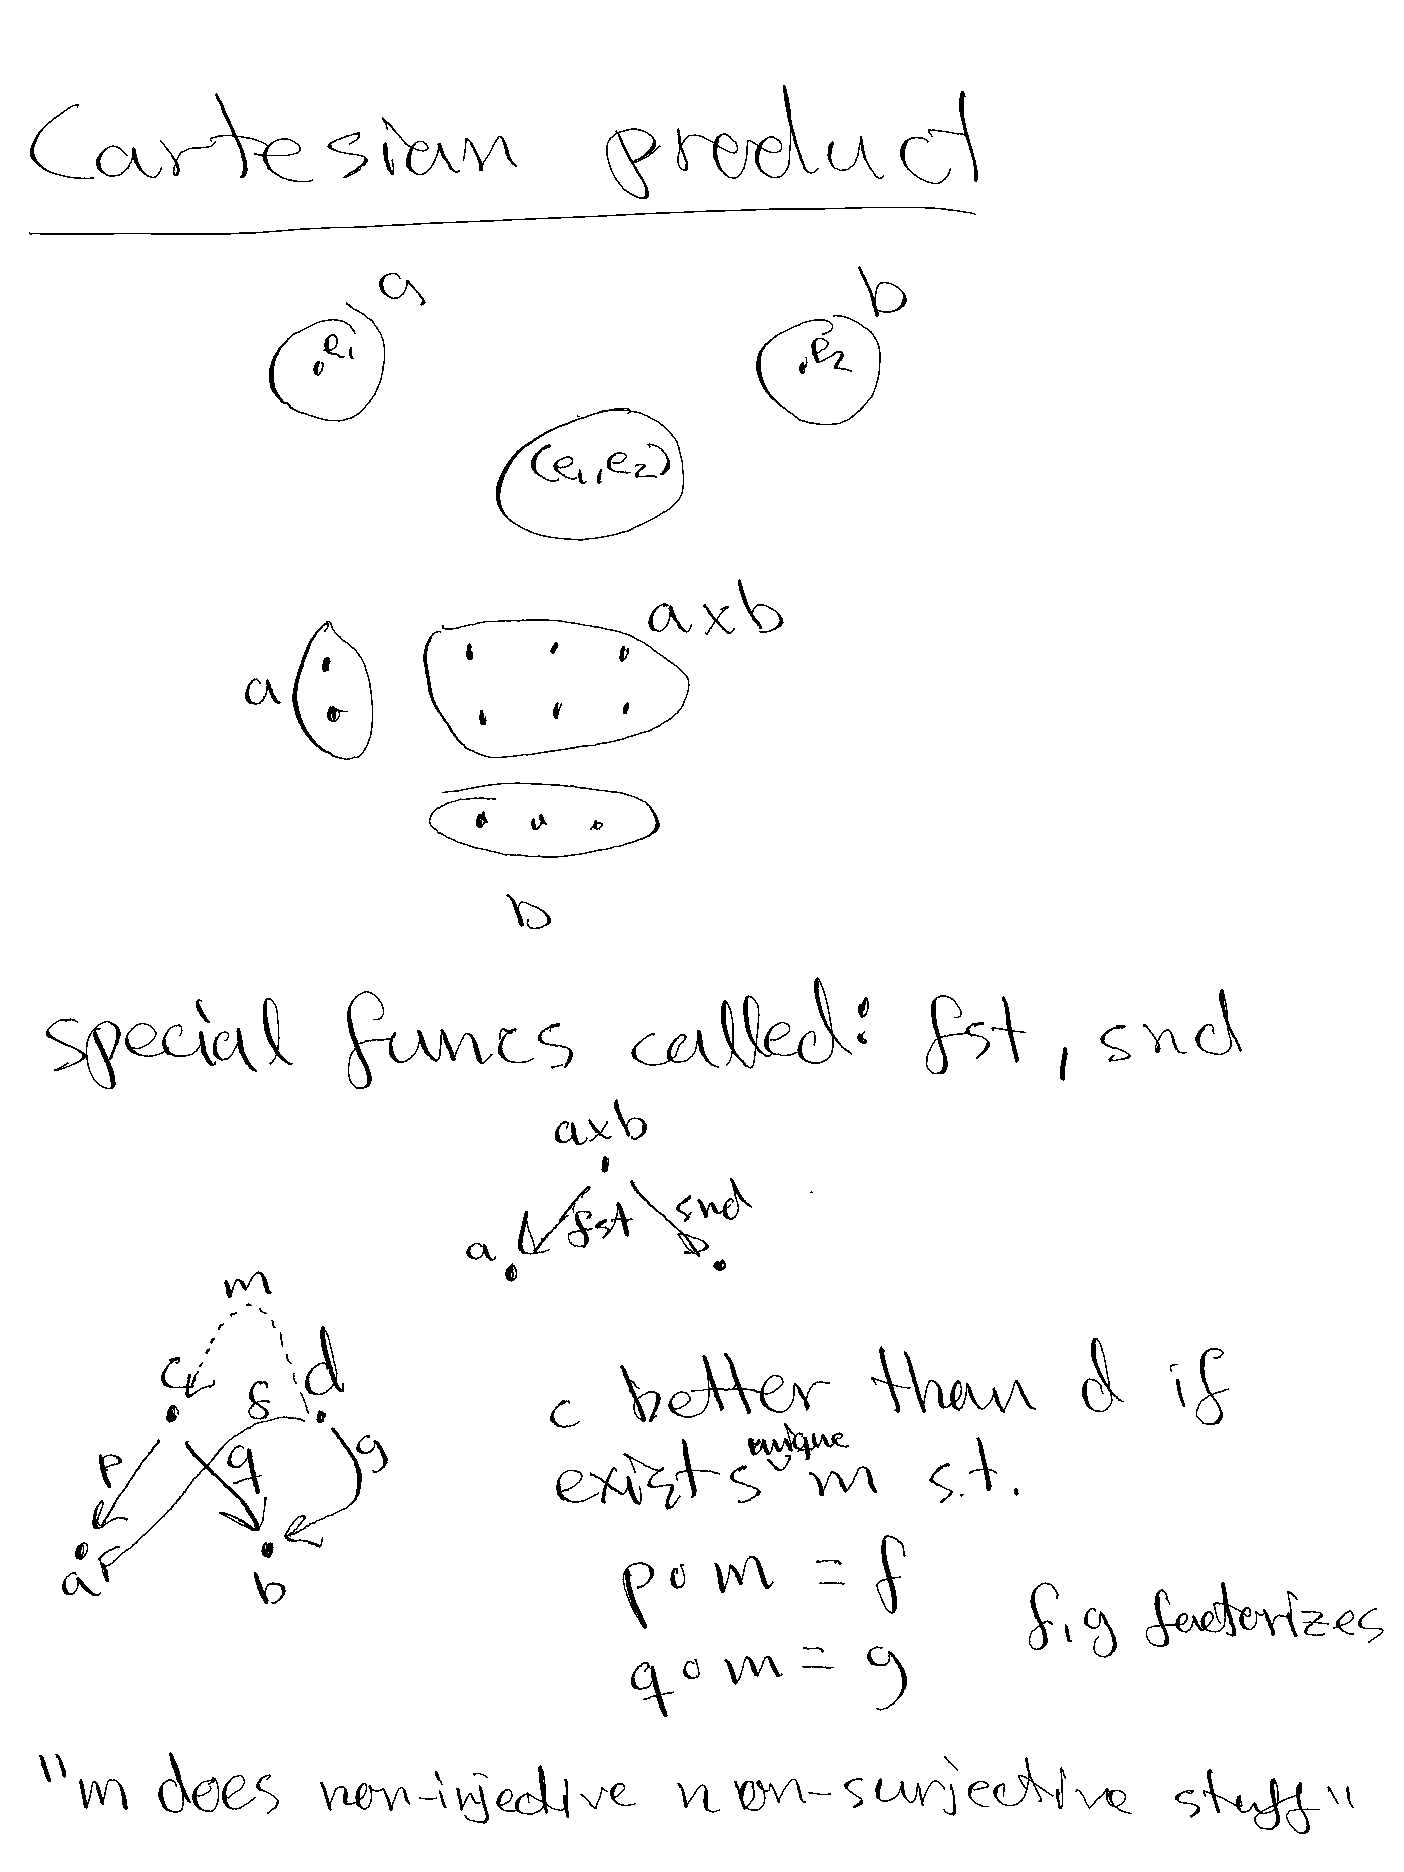 Cartesian product
a
b
e₁
e₂
(e₁,e₂)
a×b
a
b
special funcs called: fst, snd
a×b
fst
snd
a
m
c
d
f
p
q
g
a
b
c better than d if
exists unique m s.t.
p∘m = f
q∘m = g
f,g factorizes
"m does non-injective non-surjective stuff"